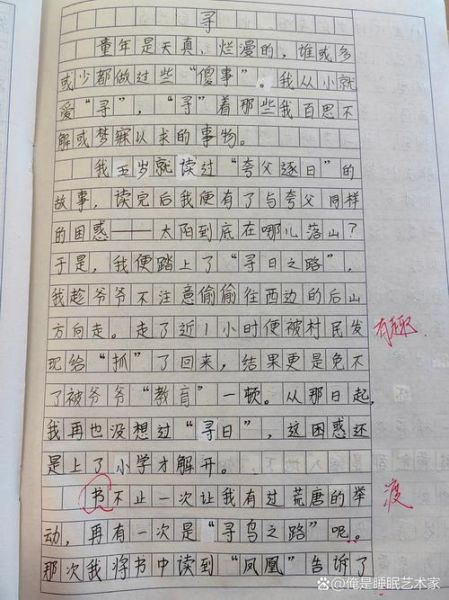 寻
童年是天真、烂漫的，谁或多
或少都做过些“傻事”。我从小就
爱“寻”，“寻”着那些我百思不
解或梦寐以求的事物。
我五岁就读过“夸父逐日”的
故事，读完后我便有了与夸父同样
的困惑——太阳到底在哪儿落山？
于是，我便踏上了“寻日之路”，
我趁爷爷不注意偷偷往西边的后山
方向走。走了近1小时便被村民发
有趣
现给“抓”了回来，结果更是免不
了被爷爷“教育”一顿。从那日起，
我再也没想过“寻日”，这困惑还
是上了小学才解开。
书不止一次让我有过荒唐的举
渡
动，再有一次是“寻鸟之路”呢。
那次我将书中读到“凤凰”告诉了
头条@俺是睡眠艺术家